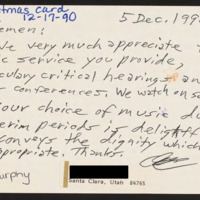 tmas card
12-17-90
5 Dec. 199
emen:
We very much appreciate t
ic service you provide,
culary critical hearings an
r conferences. We watch on s
our choice of music du
terim periods is delightf
conveys the dignity which
propriate. Thanks.
urphy
Santa Clara, Utah 84765